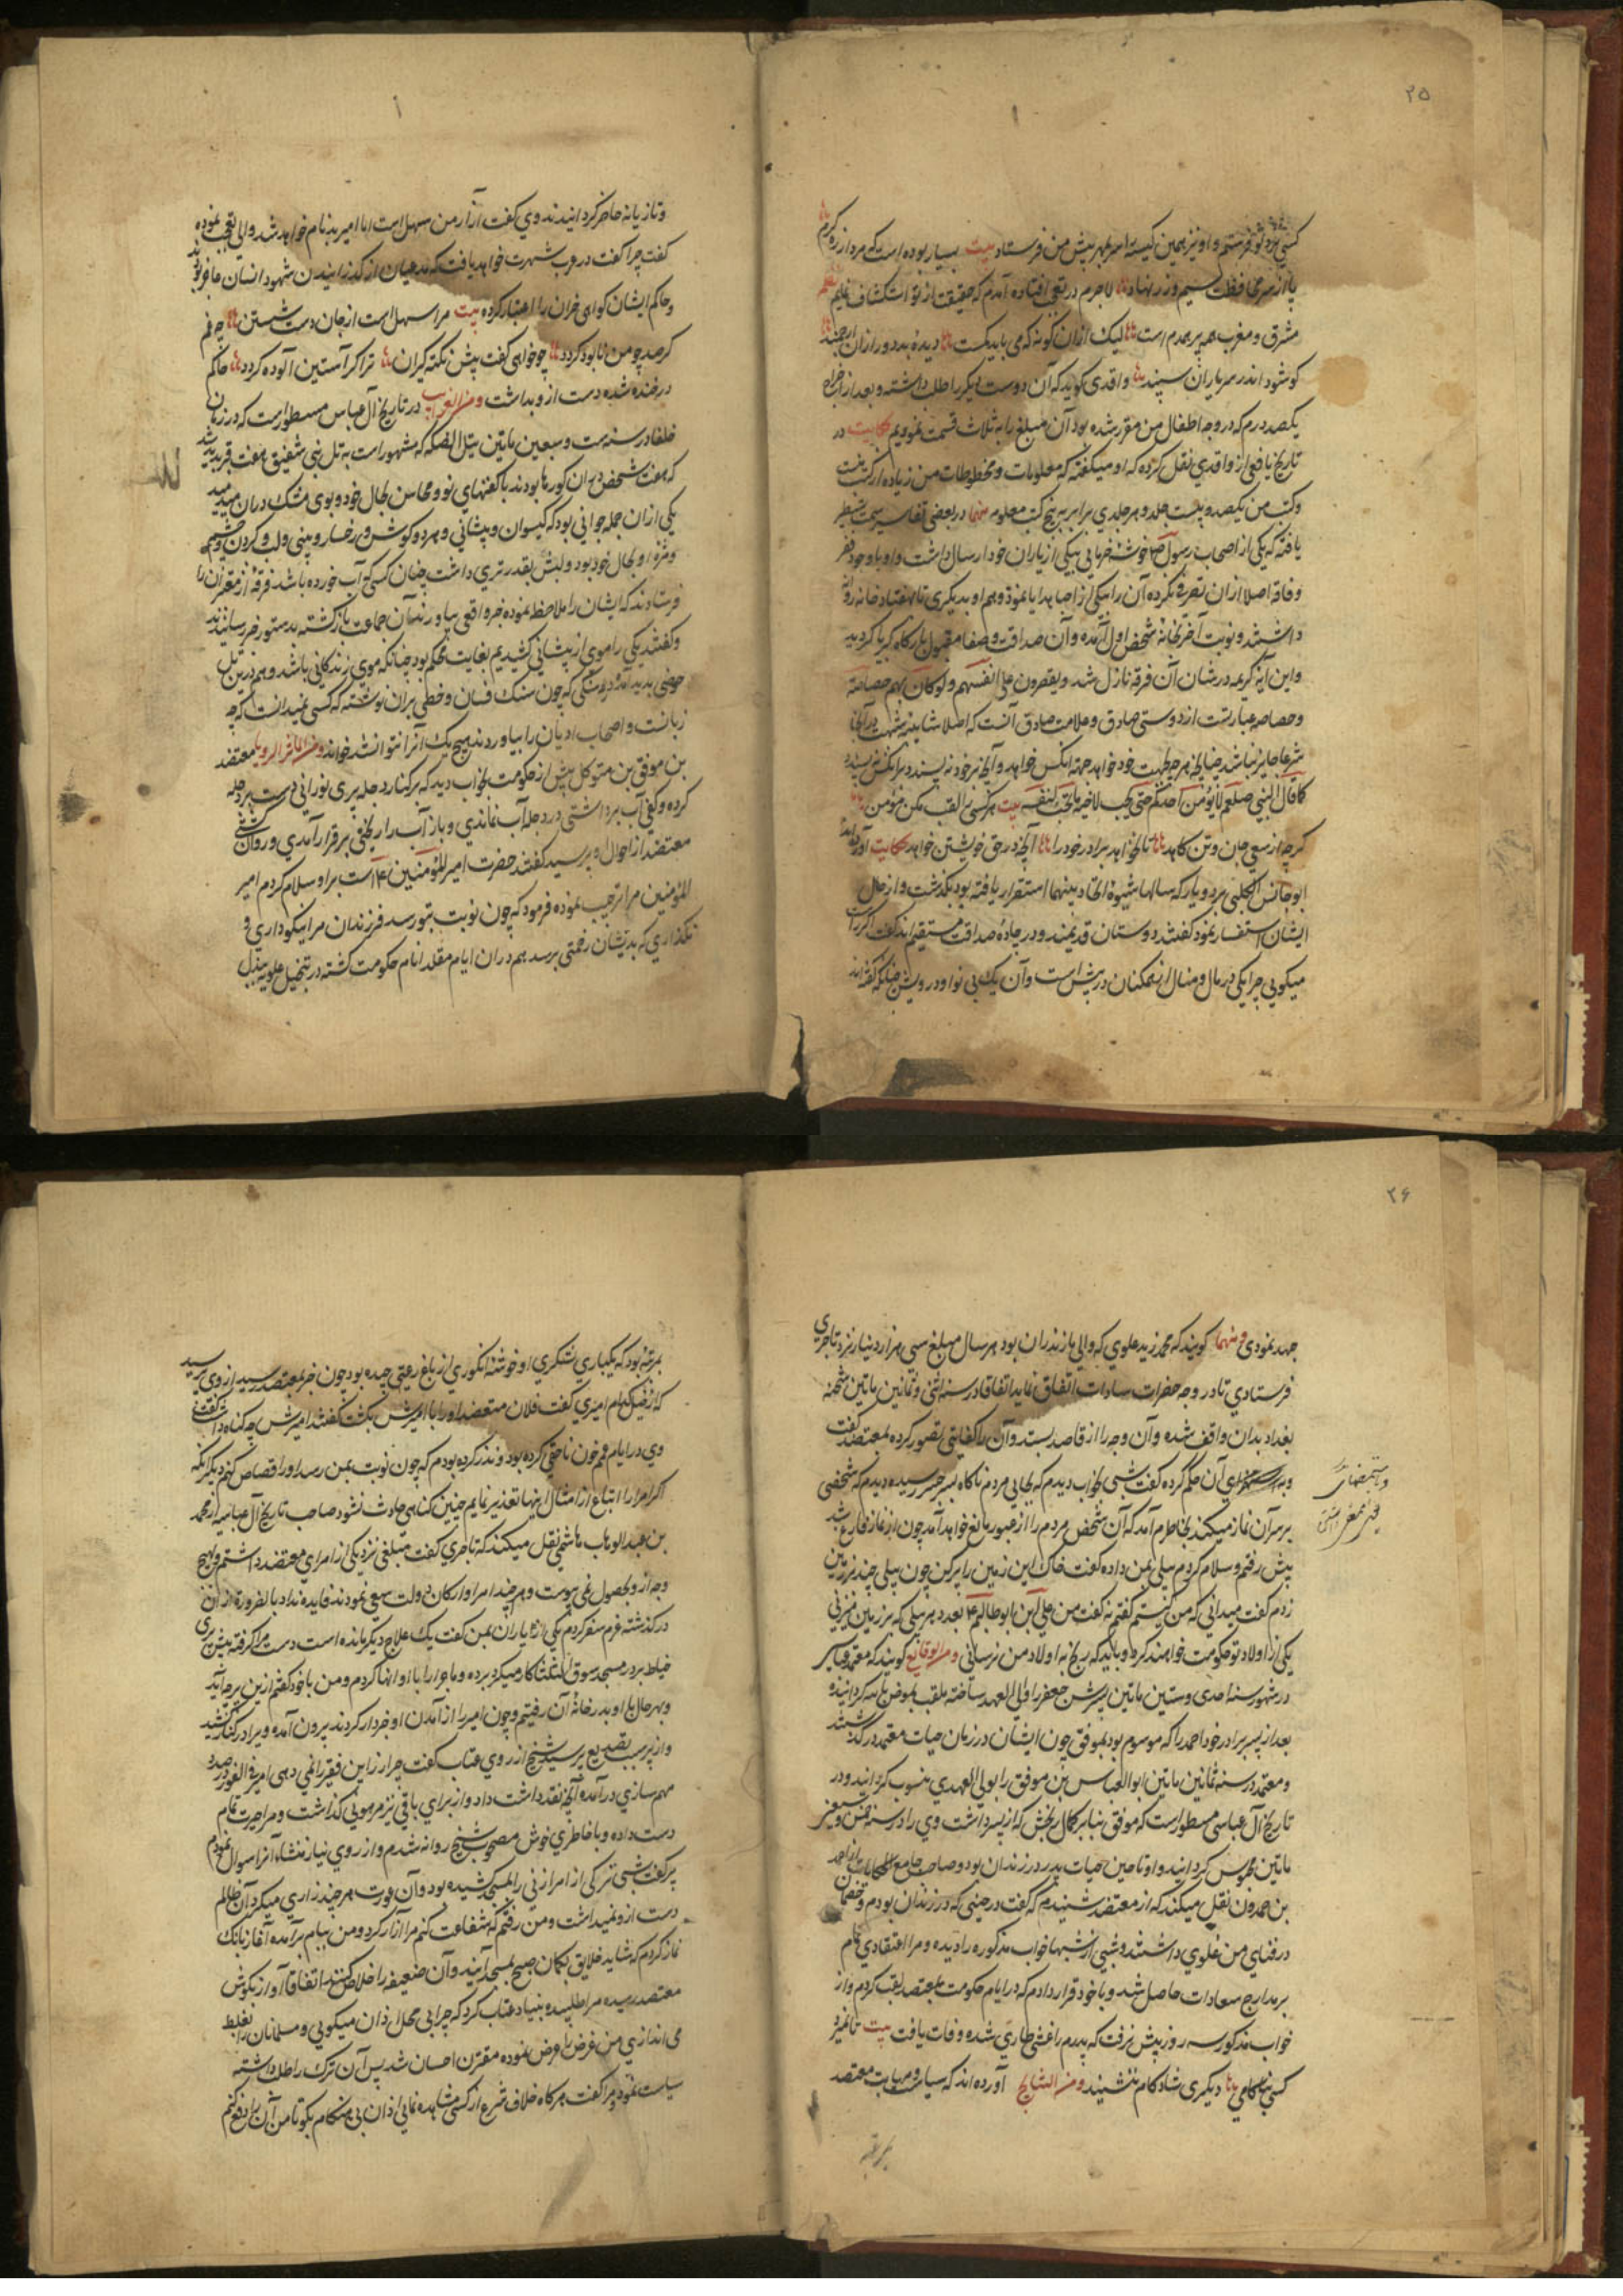 ۲۵
کسی نزد تو فرستم و او نیز همین کیسه را سر بمهر پیش من فرستاد بیت بسیار بوده است که مرد از ره کرم
پا از سر محافظت سیم و زر نهاد لاجرم در تعجب افتاده آمدم که حقیقت از تو استکشاف نمایم نظم
مشرق و مغرب همه پر همدم است لیک ازان گونه که می باید کمست دیده بد دور ازان ارجمند
کو شود اندر سر یاران سپند واقدی گوید که آن دوست دیگر را طلب داشته و بعد از اخراج
یکصد درم که در وجه اطفال من مقرر شده بود آن مبلغ را به ثلاث قسمت نمودیم حکایت در
تاریخ یافعی از واقدی نقل کرده که او میگفته که معلومات و محفوظات من زیاده از کتب منست
و کتب من یکصد و بیست جلد و هر جلدی برابر به پنج کتب معلوم منها در بعضی تفاسیر سمت تسطیر
یافته که یکی از اصحاب رسول خوشه خرمایی بیکی از یاران خود ارسال داشت و او با وجود فقر
و فاقه اصلا ازان تصرفی نکرده آن را بیکی از احبا هدایا نمود و هم او بدیگری تا بهفتاد خانه روان
داشتند و نوبت آخر بخانه شخص اول آمده و آن صداقت و صفا مقبول بارگاه کبریا گردید
و این آیه کریمه در شان آن فرقه نازل شد و یوثرون علی انفسهم ولو کان بهم خصاصة
و خصاصه عبارتست از دوستی صادق و علامت صادق آنست که اصلا شایبه شبهت در آنجا
شرعا جایز نباشد چنانچه هرچه بجهت خود خواهد جهة آنکس خواهد و آنچه بر خود نپسندد بر آنکس نپسندد
کما قال النبی صلعم لا یؤمن احدکم حتی یحب لاخیه ما یحب لنفسه بیت هر کسی را لقب مکن مؤمن
گرچه از سعی جان و تن کاهد تا نخواهد برادر خود را آنچه در حق خویشتن خواهد حکایت آورده اند
ابو حابس الحلبی بر دو یار که سالها شیوه اتحاد بینهما استقرار یافته بود بگذشت و از حال
ایشان استفسار نمود گفتند دوستان قدیمند و در جاده صداقت مستقیم اند گفت اگر راست
میگویی چرا یکی در مال و منال از همکنان در پیش است و آن یک بی نوا و درویش چنانکه گفته اند
و تازیانه حاضر گردانیدند وی گفت آزار من سهل است اما امیر بدنام خواهد شد والی تعجب نموده
گفت چرا گفت در عرب شهرت خواهد یافت که مدعیان از گذرانیدن شهود انسان عاجز بوند
و حاکم ایشان گواهی خران را اعتبار کرده بیت مرا سهل است از جان دست شستن چه غم
گر صد چو من نابود گردد چو خواهی گفت پیش نکته گیران ترا گر آستین آلوده گردد حاکم
در خنده شده دست از و بداشت و من الغرایب در تاریخ آل عباس مسطور است که در زمان
خلفا در سنه ست و سبعین ماتین بتل النضکه که مشهور است به تل بنی شقیق هفت قبر پدید شد
که هفت شخص در آن گورها بودند با کفنهای نو و محاسن بحال خود و بوی مشک دران میدمید
یکی ازان جمله جوانی بود که گیسوان و پیشانی و هر دو گوش و رخسار و بینی و لب و گردن و چشم
و مژه او بحال خود بود و لبش بقدر تری داشت چنان کسی که آب خورده باشد فرقه از مقربان را
فرستادند که ایشان را ملاحظه نموده خبر واقعی بیاورند آن جماعت بازگشته بدستور خبر رسانیدند
و گفتند یکی را موی از پیشانی کشیدیم بغایت محکم بود چنانکه موی زندگانی باشد و هم درین تل
حوضی پدید آمد و سنگی که چون سنگ فسان و خطی بران نوشته که کسی نمیدانست که چه
زبانست و اصحاب ادیان را بیاوردند هیچ یک آنرا نتوانستند خواند و من الماثر الرویا معتضد
بن موفق بن متوکل پیش از حکومت بخواب دید که بر کنار دجله پری نورانی دست بر دجله
کرده و کفی آب برداشتی در دجله آب نماندی و باز آب را ریختی بر قرار آمدی و روان گشتی
معتضد از احوال او پرسید گفتند حضرت امیر المؤمنین است بر او سلام کردم امیر
المؤمنین مرا ترحیب نموده فرمود که چون نوبت بتو رسد فرزندان مرا نیکو داری و
نگذاری که بدیشان زحمتی برسد هم دران ایام مقلد انام حکومت گشته در تبجیل علویه مبذل
۲۶
جهد نمودی و منها گویند که محمد زید علوی که والی مازندران بود هر سال مبلغ سی هزار دینار نزد تاجری
فرستادی تا در وجه حضرات سادات انفاق نماید اتفاقا در سنه اثنی و ثمانین ماتین شحنه
بغداد بدان واقف شده و آن وجه را از قاصد بستد و آن را کفایتی تصور کرده بمعتضد گفت
آن حکم کرده گفت شبی بخواب دیدم که بجایی مردم ناگاه بسر جسر رسیده دیدم که شخصی
بر سر آن نماز میکند بخاطرم آمد که آن شخص مردم را از عبور مانع خواهد آمد چون از نماز فارغ شد
پیش رفتم و سلام کردم بیلی بمن داده گفت خاک این زمین را برکن چون بیلی چند بر زمین
زدم گفت میدانی که من کیستم گفتم نه گفت من علی ابن ابوطالبم بعدد هر بیلی که بر زمین میزنی
یکی از اولاد تو حکومت خواهند کرد و باید که رنج به اولاد من نرسانی و من الوقایع گویند که معتمد عباسی
در شهور سنه احدی و ستین ماتین پسرش جعفر را ولی العهد ساخته ملقب بمفوض بالله گردانیده
بعد از پسر برادر خود احمد را که موسوم بود بموفق چون ایشان در زمان حیات معتمد در گذشتند
و معتمد در سنه ثمانین ماتین ابوالعباس بن موفق را بولی العهدی منسوب گردانید و در
تاریخ آل عباسی مسطور است که موفق بنابر کمال رنجش که از پسر داشت وی را در سنه ثمن و سبعین
ماتین محبوس گردانید و او تا حین حیات پدر در زندان بود و صاحب جامع الحکایات از احمد
بن حمدون نقل میکند که از معتضد شنیدم که گفت در حینی که در زندان بودم و خصمان
در فنای من غلوی داشتند و شبی از شبها خواب مذکوره را دیده و مرا اعتقادی تمام
بر مدارج سعادات حاصل شد و با خود قرار دادم که در ایام حکومت بمعتضد لقب گردم و از
خواب مذکور سه روز بیش نرفت که پدرم را غشی طاری شده وفات یافت بیت تا نمیرد
کسی بناکامی دیگری شادکام ننشیند و من النتایج آورده اند که سیاست و مهابت معتضد
بمرتبه
بمرتبه بود که یکباری لشکری او خوشه انگوری از باغ رعیتی چیده بود چون خبر بمعتضد رسید از وی پرسید
که از خیل کدام امیری گفت فلان معتضد او را با امیرش بکشت گفتند امیرش چه گناه داشت گفت
وی در ایام عمم خون ناحقی کرده بود و نذر کرده بودم که چون نوبت بمن رسد او را قصاص کنم دیگر آنکه
اگر امرا را اتباع از امثال اینها تعذیر نمایم چنین گناهی حادث نشود صاحب تاریخ آل عباسیه از محمد
بن عبدالوهاب هاشمی نقل میکند که تاجری گفت مبلغی نزد یکی از امرای معتضد داشتم و بهیچ
وجه ازو بحصول نمی پیوست و هر چند امرا و ارکان دولت سعی نمودند فایده نداد بالضروره از آن
درگذشته عزم سفر کردم یکی از یاران بمن گفت یک علاج دیگر مانده است دست مرا گرفته پیش پیری
خیاط بر در مسجد سوق الثلثا کار میکرد برده و ماجرا را با او انها کردم و من با خود گفتم ازین پیر چه آید
و بهر حال با او بدر خانه آن رفتیم و چون امیر را از آمدن او خبردار کردند بیرون آمده و پیر را در کنار کشید
و از سبب تصدیع پرسید شیخ از روی عتاب گفت چرا زر این فقیر را نمی دهی امیر فی الفور در صدد
مهم سازی در آمده آنچه نقد داشت داد و از برای باقی نیز مرهونی گذاشت و مرا حیرت تمام
دست داده و با خاطری خوش مصحوب شیخ روانه شدم و از روی نیاز منشاء آنرا سوال نمودم
پیر گفت شبی ترکی از امرا زنی را بمسجد کشیده بود و آن عورت هر چند زاری میکرد آن ظالم
دست ازو نمیداشت و من رفتم که شفاعت کنم مرا آزار کرد و من ببام برآمده آغاز بانگ
نماز کردم که شاید خلایق بگمان صبح بمسجد آیند و آن ضعیفه را خلاص کنند اتفاقا آواز بگوش
معتضد رسیده مرا طلبیده بنیاد عتاب کرد که چرا بی محل اذان میگویی و مسلمانان را بغلط
می اندازی من غرض را عرض نموده مقترن احسان شد پس آن ترک را طلب داشته
سیاست نمود و مرا گفت هر گاه خلاف شرع از کسی مشاهده نمایی اذان بی هنگام بگو تا من آن را دفع کنم